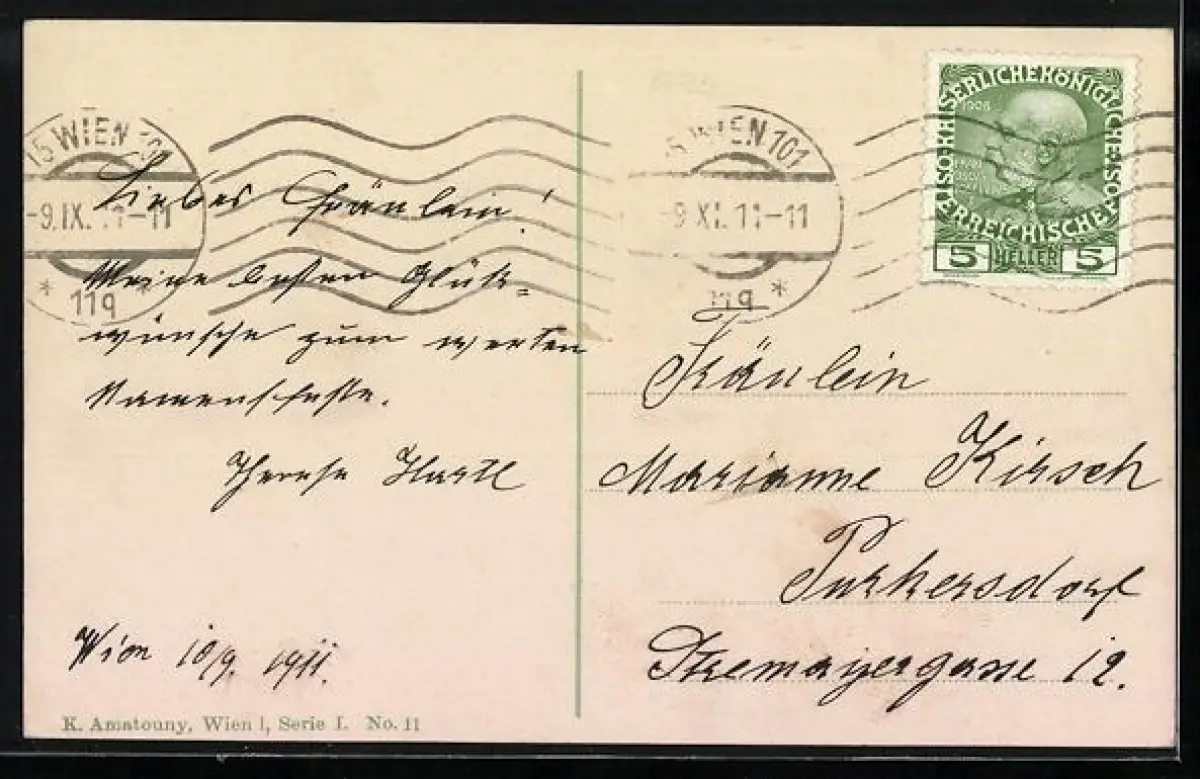 15 WIEN 101
-9.IX.11-11
* 119 *
Liebes Fräulein!
Meine besten Glück-
wünsche zum werten
Namensfeste.
Therese Hartl
Wien 10/9. 1911.
K. Amatouny, Wien I, Serie I. No. 11
WIEN 101
9.XI.11-11
119 *
KAISERLICHE KÖNIGLICHE ÖSTERREICHISCHE POST
1908
5 HELLER 5
Fräulein
Marianne Kirsch
Purkersdorf
Stremayergasse 12.